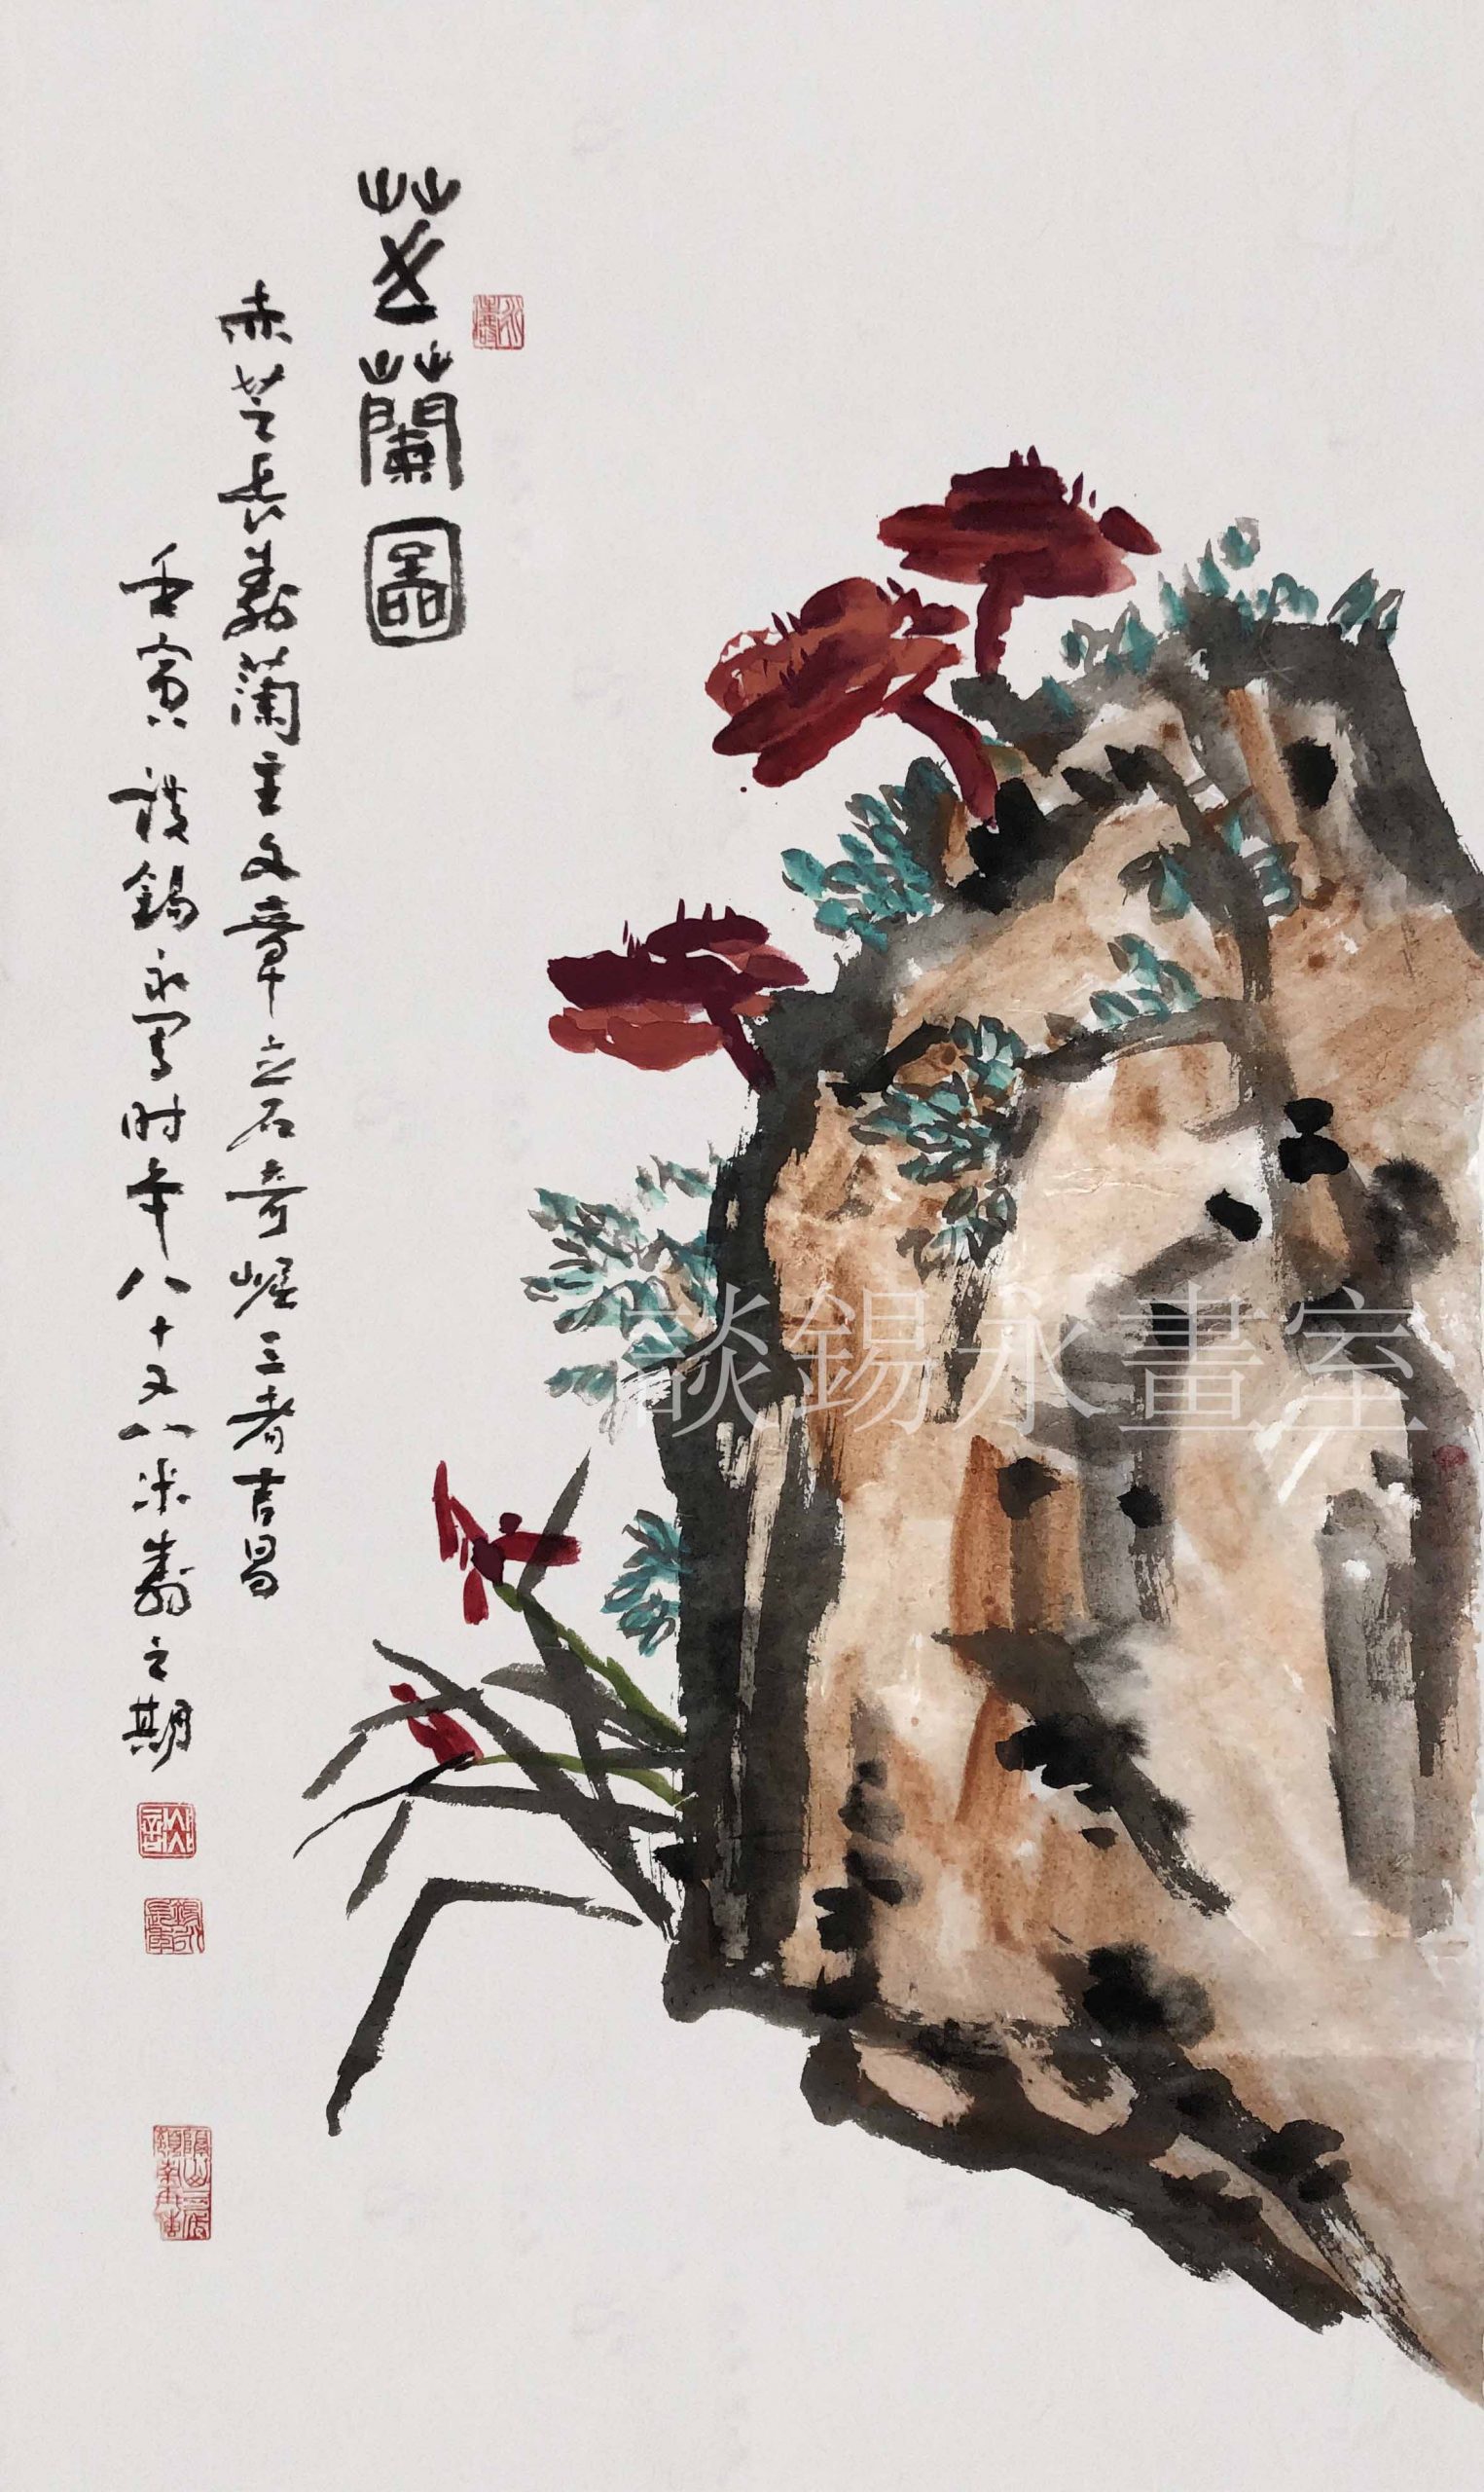 芝蘭圖
赤芝長壽蘭主文章立石奇崛三者吉昌
壬寅談錫永寫時年八十又八米壽之期
談錫永畫室